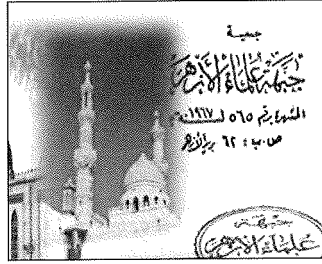 جمعية
جبهة علماء الأزهر
المشهرة برقم ٥٦٥ لسنة ١٩٦٧
ص.ب: ٦٢ بريد الأزهر
جبهة
علماء الأزهر